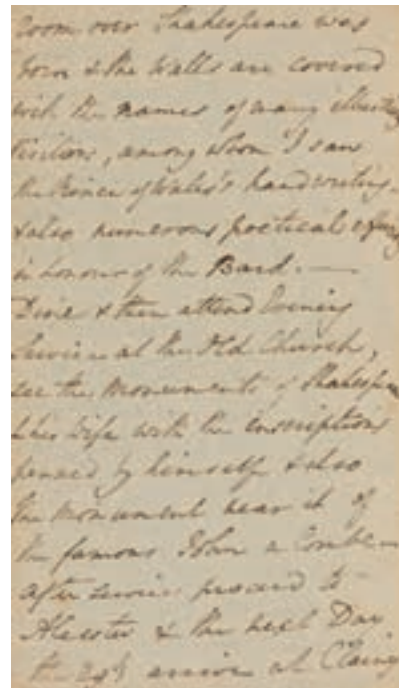 room over Shakespeare was
born & the Walls are covered
with the names of many
Visitors, among whom I saw
the Prince of Wales's handwriting
& also numerous poetical
in honour of the Bard. —
Dine & then attend Evening
Service at the Old Church,
see the Monuments of Shakespeare
& his Wife with the inscriptions
penned by himself & also
the Monument near it of
the famous John a Combe —
after service proceed to
Alcester & the next Day
the arrive at